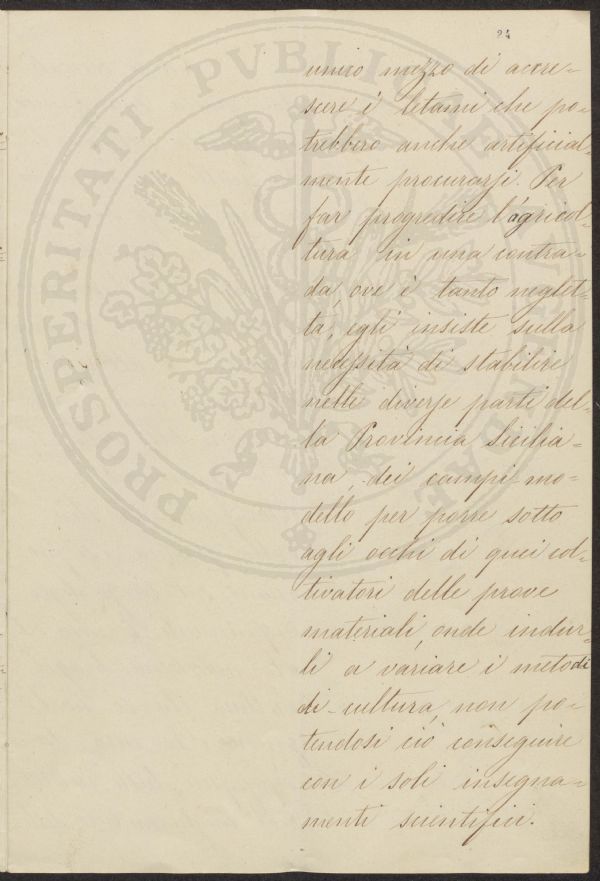 24
unico mezzo di accre-
scere i letami che po-
trebbero anche artificial-
mente procurarsi. Per
far progredire l'agricol-
tura in una contra-
da, ove è tanto neglet-
ta, egli insiste sulla
necessità di stabilire
nelle diverse parti del-
la Provincia Sicilia-
na, dei campi mo-
dello per porre sotto
agli occhi di quei col-
tivatori delle prove
materiali, onde indur-
li a variare i metodi
di cultura, non po-
tendosi ciò conseguire
con i soli insegna-
menti scientifici.
PROSPERITATI PVBLICAE